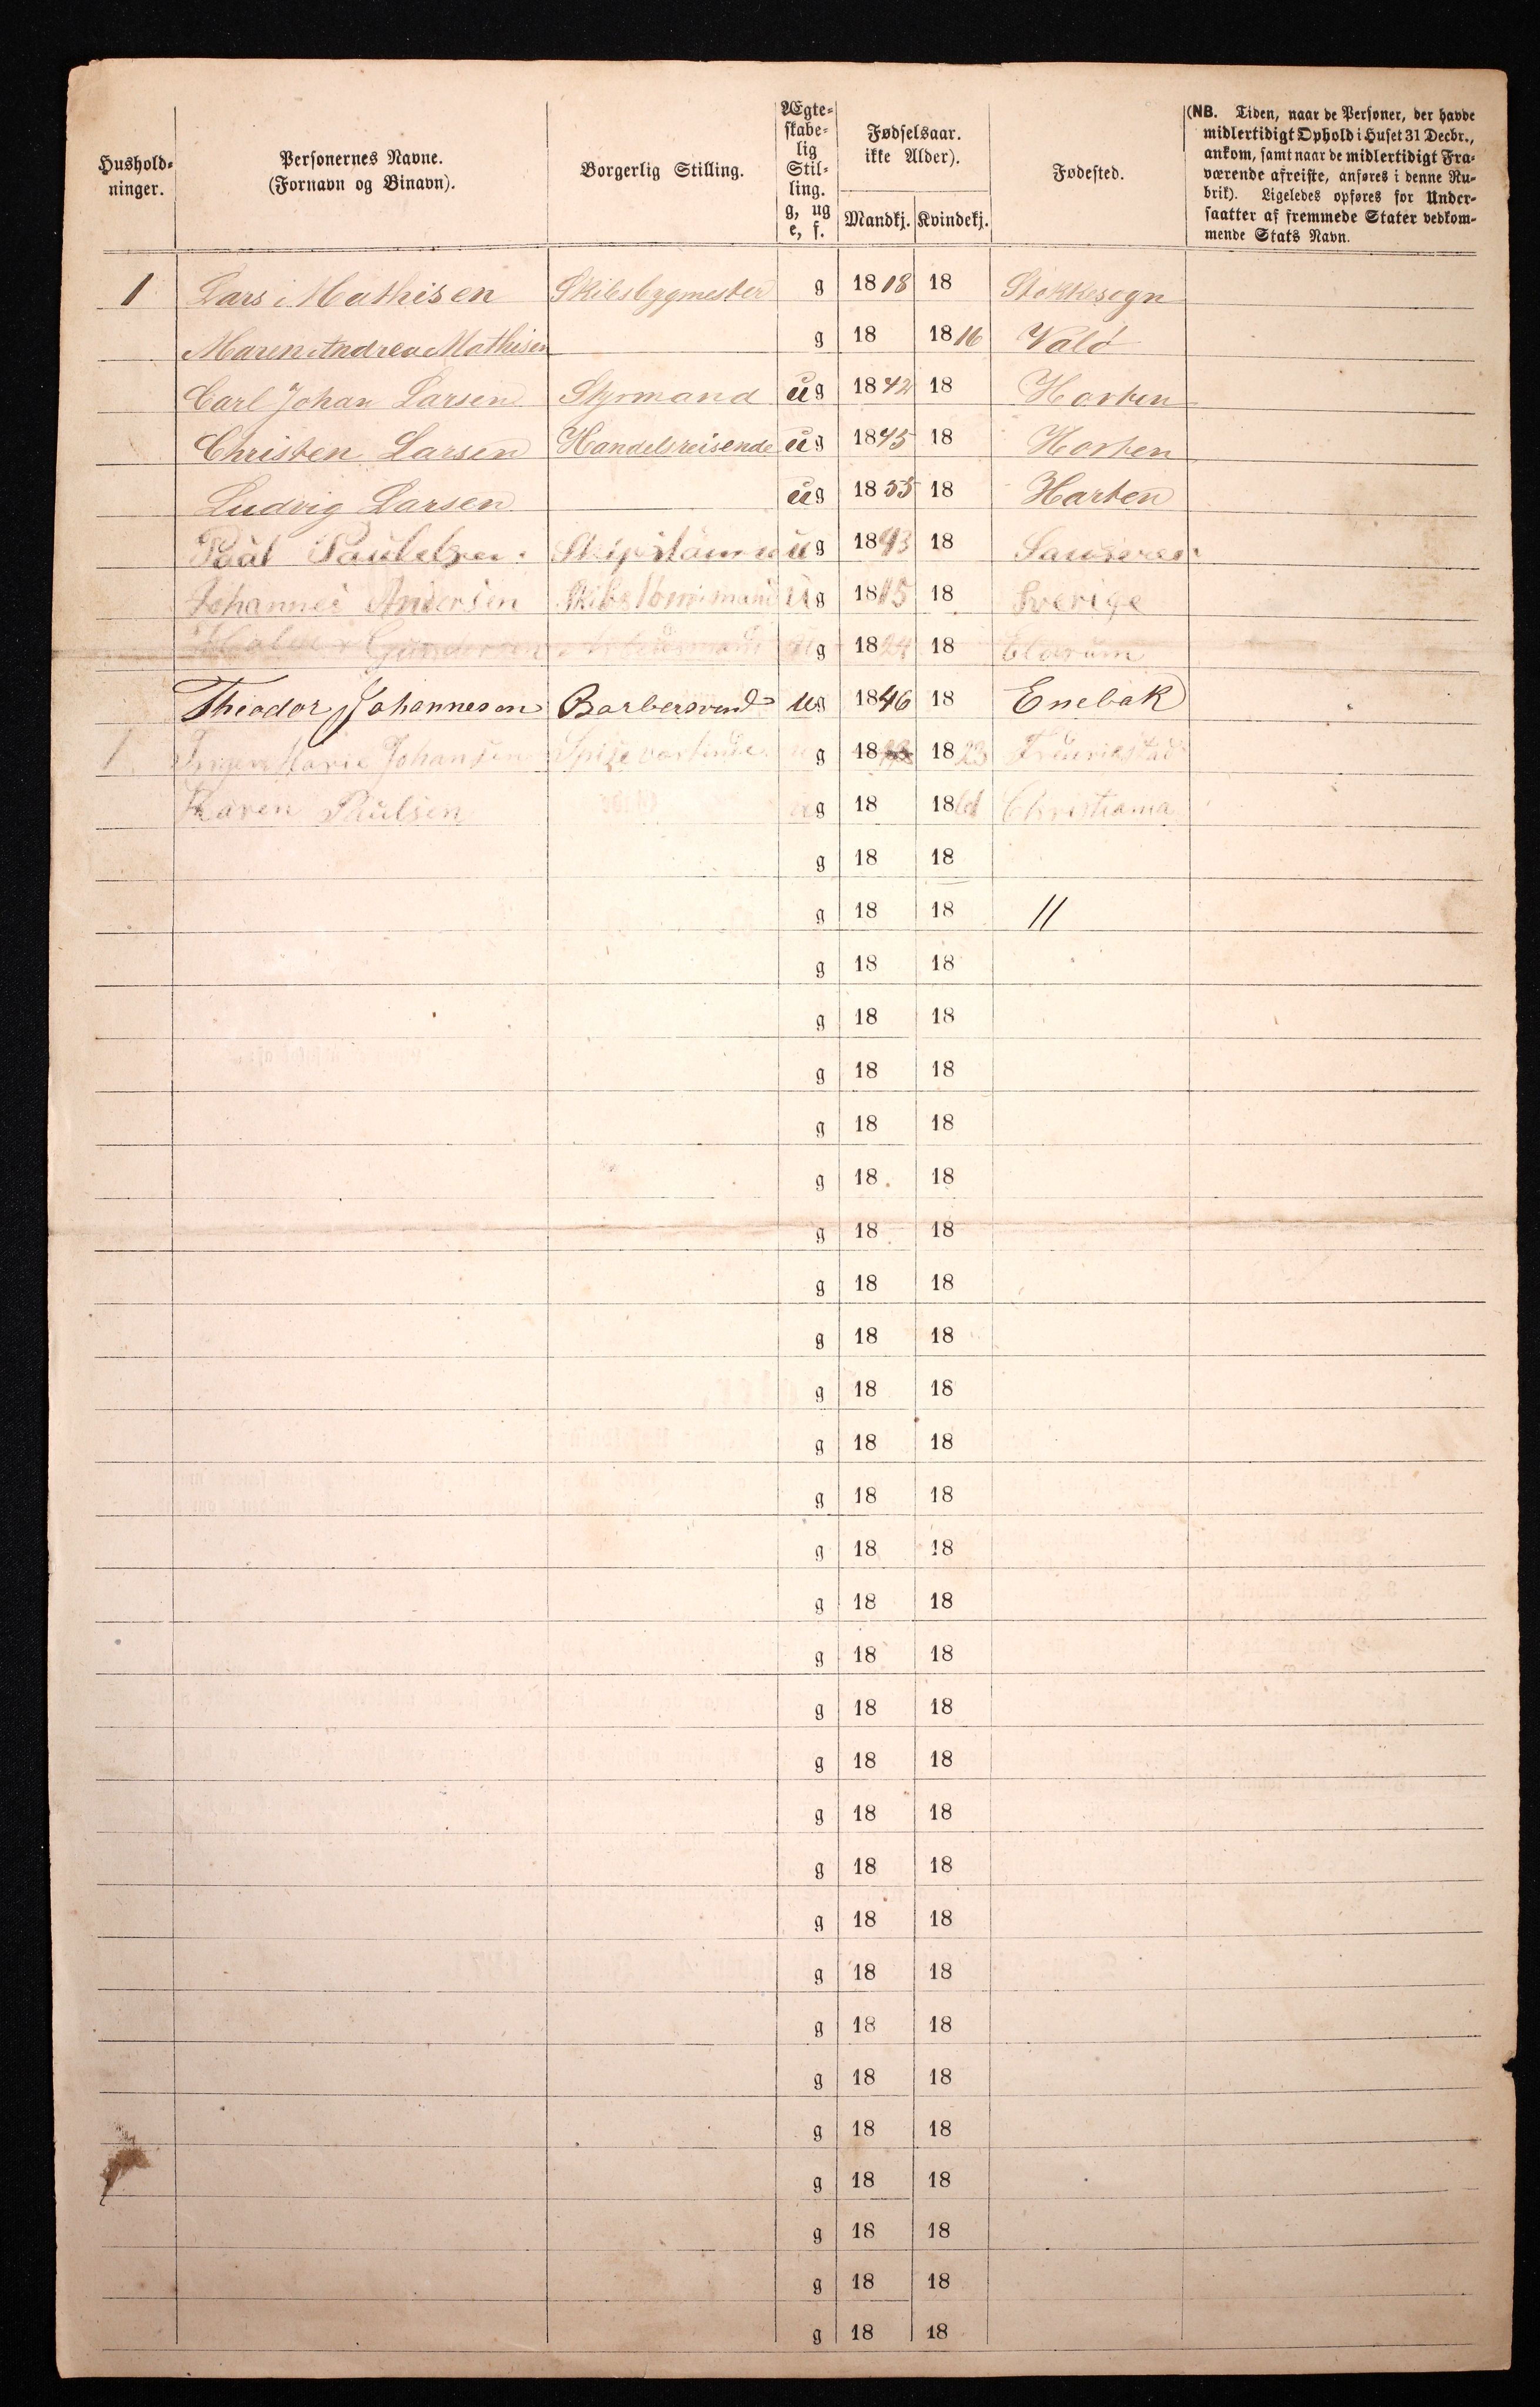 Hushold-
ninger.
Personernes Navne.
(Fornavn og Binavn).
Borgerlig Stilling.
Ægte-
skabe-
lig
Stil-
ling.
g, ug
e, f.
Fødselsaar.
ikke Alder).
Mandkj. Kvindekj.
Fødested.
(NB. Tiden, naar de Personer, der havde
midlertidigt Ophold i Huset 31 Decbr.,
ankom, samt naar de midlertidigt Fra-
værende afreiste, anføres i denne Ru-
brik). Ligeledes opføres for Under-
saatter af fremmede Stater vedkom-
mende Stats Navn.
1 Lars Mathisen Skibsbygmester g 1818 18 Stokkesogn
Maren Andrea Mathisen g 18 1816 Valø
Carl Johan Larsen Styrmand ug 1842 18 Horten
Christen Larsen Handelsreisende ug 1845 18 Horten
Ludvig Larsen ug 1855 18 Harten
Paul Paulsen ug 1843 18
Johannes Andersen ug 1815 18 Sverige
Gundersen Arbeidsmand ug 1824 18
Theodor Johannesen Barbersvend ug 1846 18 Enebak
1 Inger Marie Johansen Spisevartinde ug 18 1823 Fredrikstad
Karen Paulsen ug 18 18 Christiania
g 18 18
g 18 18 11
g 18 18
g 18 18
g 18 18
g 18 18
g 18 18
g 18 18
g 18 18
g 18 18
g 18 18
g 18 18
g 18 18
g 18 18
g 18 18
g 18 18
g 18 18
g 18 18
g 18 18
g 18 18
g 18 18
g 18 18
g 18 18
g 18 18
g 18 18
g 18 18
g 18 18
g 18 18
g 18 18